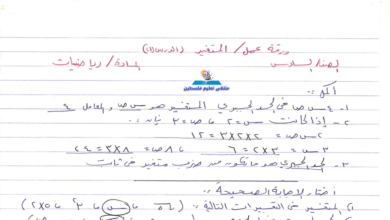 ورقة عمل / المتغير (الدرس (١))
الصف السادس
المادة / رياضيات
ملتقى تعليم فلسطين
أكمل :
١- ٤ س ص في الحد الجبري المتغير هو س ص والعامل ٤
٢- إذا كانت س = ٢ ، ص = ٣ فإن :
٢ س ص = ٢×٢×٣ = ١٢
٣ س = ٣×٢ = ٦ ، ٨ ص = ٨×٣ = ٢٤
٣- الحد الجبري هو ما تكون من ضرب متغير في ثابت
اختار الإجابة الصحيحة :
١) المتغير في التعبيرات التالية : ( ٥٦ ، س ، ٣ ، ٥×٢ )